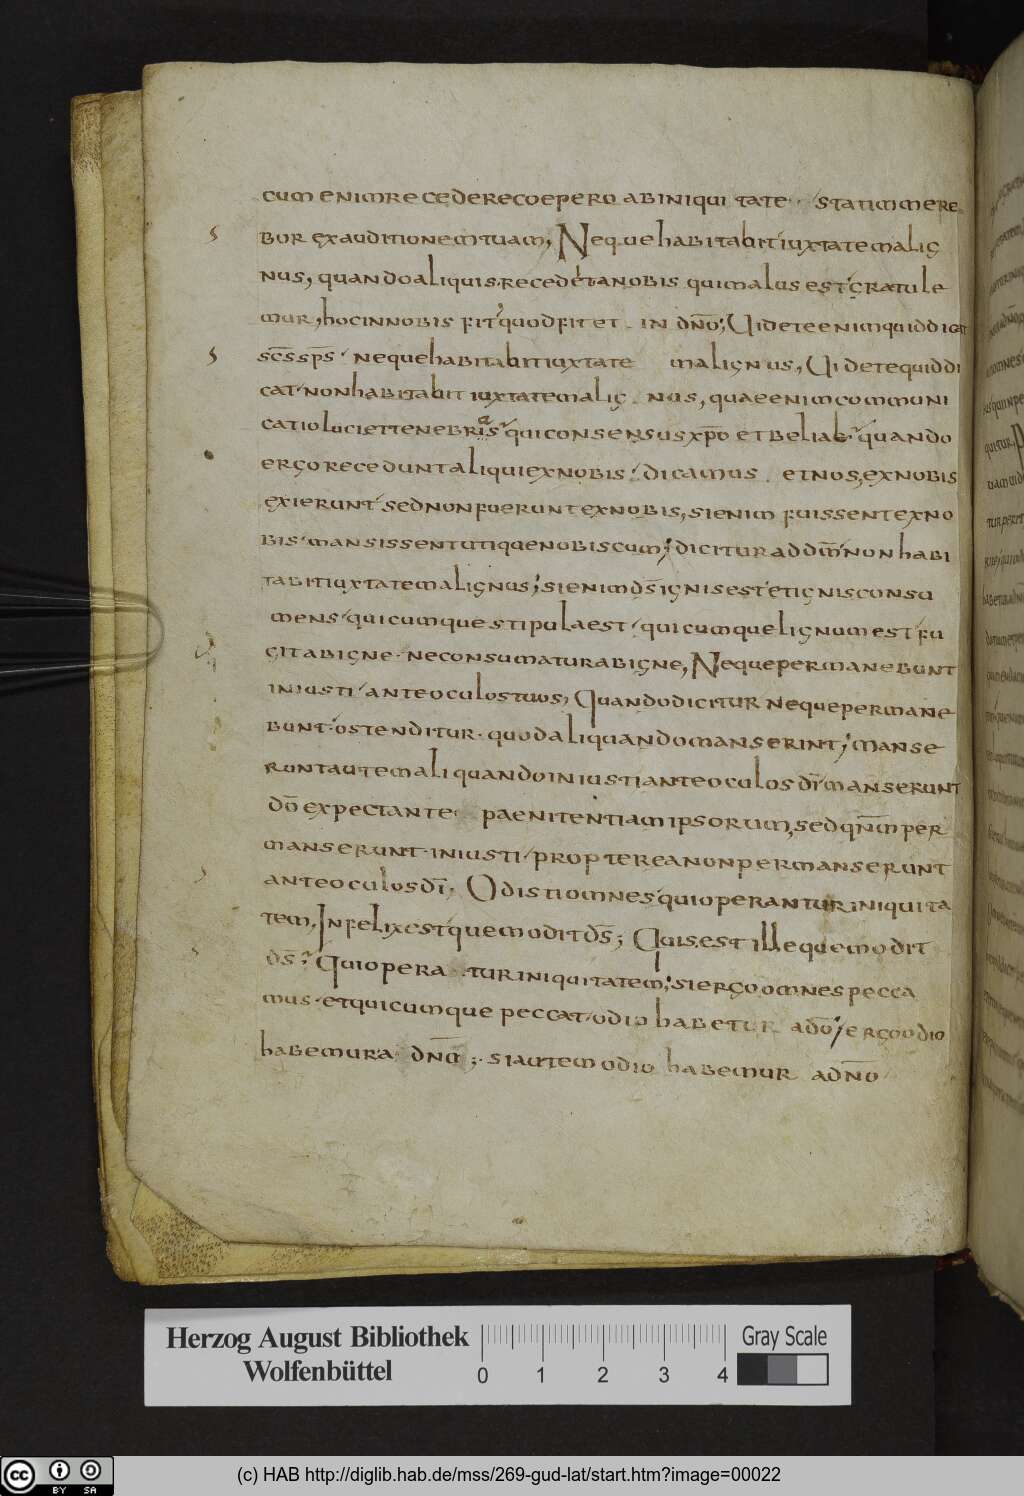 cum enim recedere coepero ab iniquitate · statim mere
bor exauditionem tuam, Neque habitabit iuxta te malig
nus, quando aliquis recedet a nobis qui malus est gratule
mur, hoc in nobis fit quod fit et in dn̄o; Uidete enim quid dicat
sc̄s sp̄s neque habitabit iuxta te malignus, Uidete quid di
cat non habitabit iuxta te malignus, quae enim communi
catio luci et tenebris qui consensus xp̄o et beliab quando
ergo recedunt aliqui ex nobis dicamus et nos, ex nobis
exierunt sed non fuerunt ex nobis, si enim fuissent ex no
bis mansissent utique nobiscum; dicitur ad dm̄ non habi
tabit iuxta te malignus; si enim ds̄ ignis est et ignis consu
mens quicumque stipula est quicumque lignum est fu
git ab igne · ne consumatur ab igne, Neque permanebunt
iniusti ante oculos tuos, Quando dicitur neque permane
bunt · ostenditur · quod aliquando manserint; manse
runt autem aliquando iniusti ante oculos dī manserunt
dō expectante paenitentiam ipsorum, sed qn̄m per
manserunt · iniusti propterea non permanserunt
ante oculos dī; Odisti omnes qui operantur iniquita
tem, Infelix est quem odit ds̄; Quis est ille quem odit
ds̄? Qui operatur iniquitatem; si ergo omnes pecca
mus · et quicumque peccat odio habetur a dō; ergo odio
habemur a dn̄o; si autem odio habemur a dn̄o
Herzog August Bibliothek
Wolfenbüttel
0 1 2 3 4
Gray Scale
cc BY SA
(c) HAB http://diglib.hab.de/mss/269-gud-lat/start.htm?image=00022